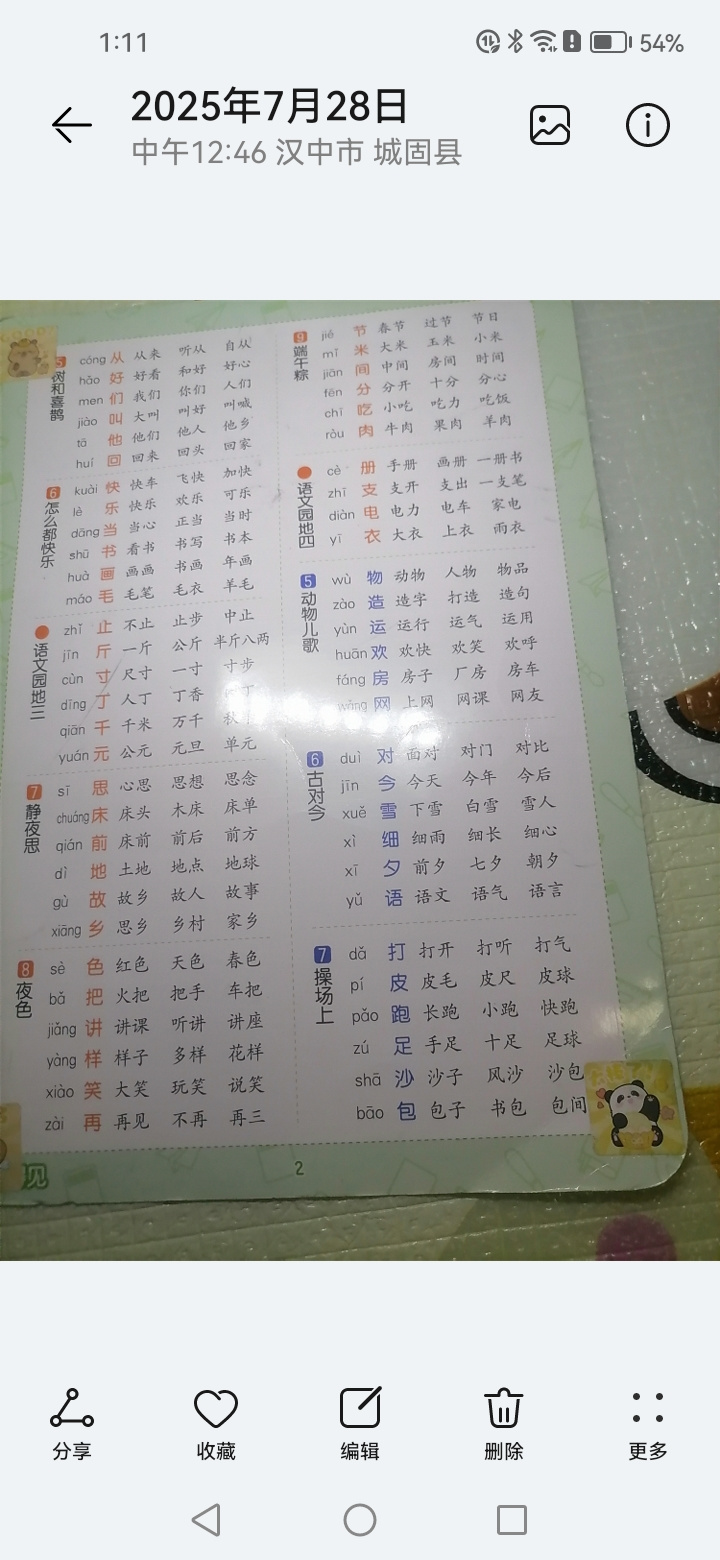 1:11
54%
2025年7月28日
中午12:46 汉中市 城固县
5 树和喜鹊
cóng 从 从来 听从 自从
hǎo 好 好看 和好 好心
men 们 我们 你们 人们
jiào 叫 大叫 叫好 叫喊
tā 他 他们 他人 他乡
huí 回 回来 回头 回家
6 怎么都快乐
kuài 快 快车 飞快 加快
lè 乐 快乐 欢乐 可乐
dāng 当 当心 正当 当时
shū 书 看书 书写 书本
huà 画 画画 书画 年画
máo 毛 毛笔 毛衣 羊毛
语文园地三
zhǐ 止 不止 止步 中止
jīn 斤 一斤 公斤 半斤八两
cùn 寸 尺寸 一寸 寸步
dīng 丁 人丁 丁香
qiān 千 千米 万千
yuán 元 公元 元旦 单元
7 静夜思
sī 思 心思 思想 思念
chuáng 床 床头 木床 床单
qián 前 床前 前后 前方
dì 地 土地 地点 地球
gù 故 故乡 故人 故事
xiāng 乡 思乡 乡村 家乡
8 夜色
sè 色 红色 天色 春色
bǎ 把 火把 把手 车把
jiǎng 讲 讲课 听讲 讲座
yàng 样 样子 多样 花样
xiào 笑 大笑 玩笑 说笑
zài 再 再见 不再 再三
9 端午粽
jié 节 春节 过节 节日
mǐ 米 大米 玉米 小米
jiān 间 中间 房间 时间
fēn 分 分开 十分 分心
chī 吃 小吃 吃力 吃饭
ròu 肉 牛肉 果肉 羊肉
语文园地四
cè 册 手册 画册 一册书
zhī 支 支开 支出 一支笔
diàn 电 电力 电车 家电
yī 衣 大衣 上衣 雨衣
5 动物儿歌
wù 物 动物 人物 物品
zào 造 造字 打造 造句
yùn 运 运行 运气 运用
huān 欢 欢快 欢笑 欢呼
fáng 房 房子 厂房 房车
wǎng 网 上网 网课 网友
6 古对今
duì 对 面对 对门 对比
jīn 今 今天 今年 今后
xuě 雪 下雪 白雪 雪人
xì 细 细雨 细长 细心
xī 夕 前夕 七夕 朝夕
yǔ 语 语文 语气 语言
7 操场上
dǎ 打 打开 打听 打气
pí 皮 皮毛 皮尺 皮球
pǎo 跑 长跑 小跑 快跑
zú 足 手足 十足 足球
shā 沙 沙子 风沙 沙包
bāo 包 包子 书包 包间
见
2
分享
收藏
编辑
删除
更多